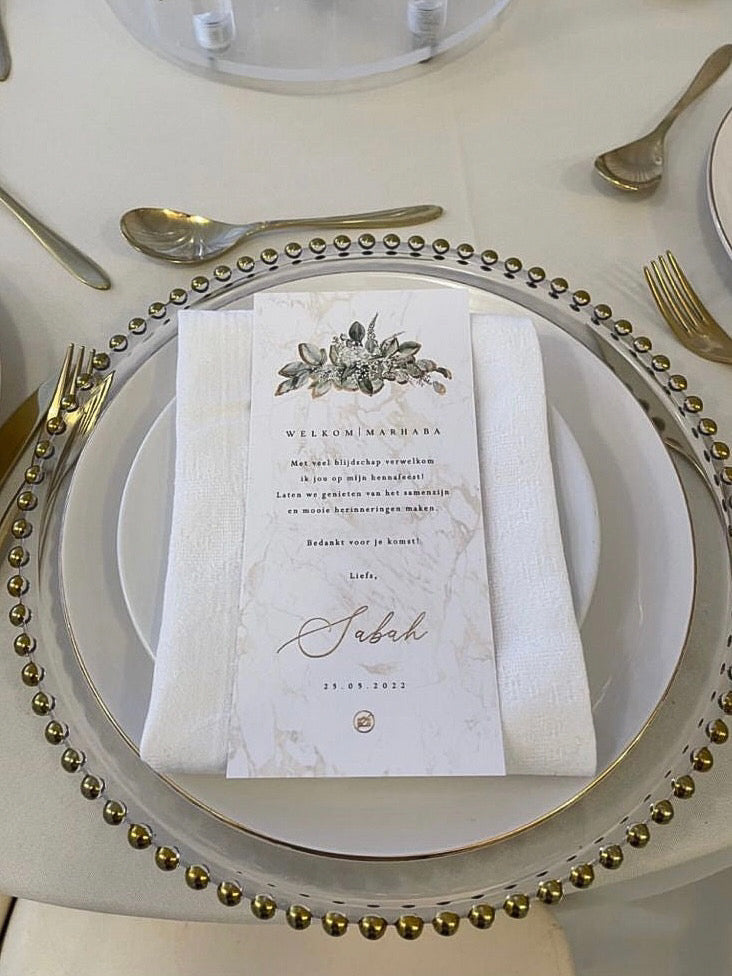 WELKOM|MARHABA
Met veel blijdschap verwelkom
ik jou op mijn hennafeest!
Laten we genieten van het samenzijn
en mooie herinneringen maken.
Bedankt voor je komst!
Liefs,
Sabah
25.05.2022